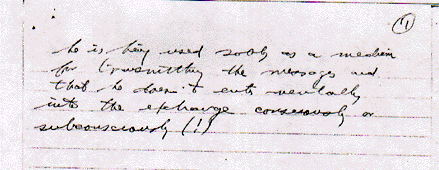 ①
he is being used solely as a medium
for transmitting the messages and
that he doesn't enter mentally
into the exchange consciously or
subconsciously (!)